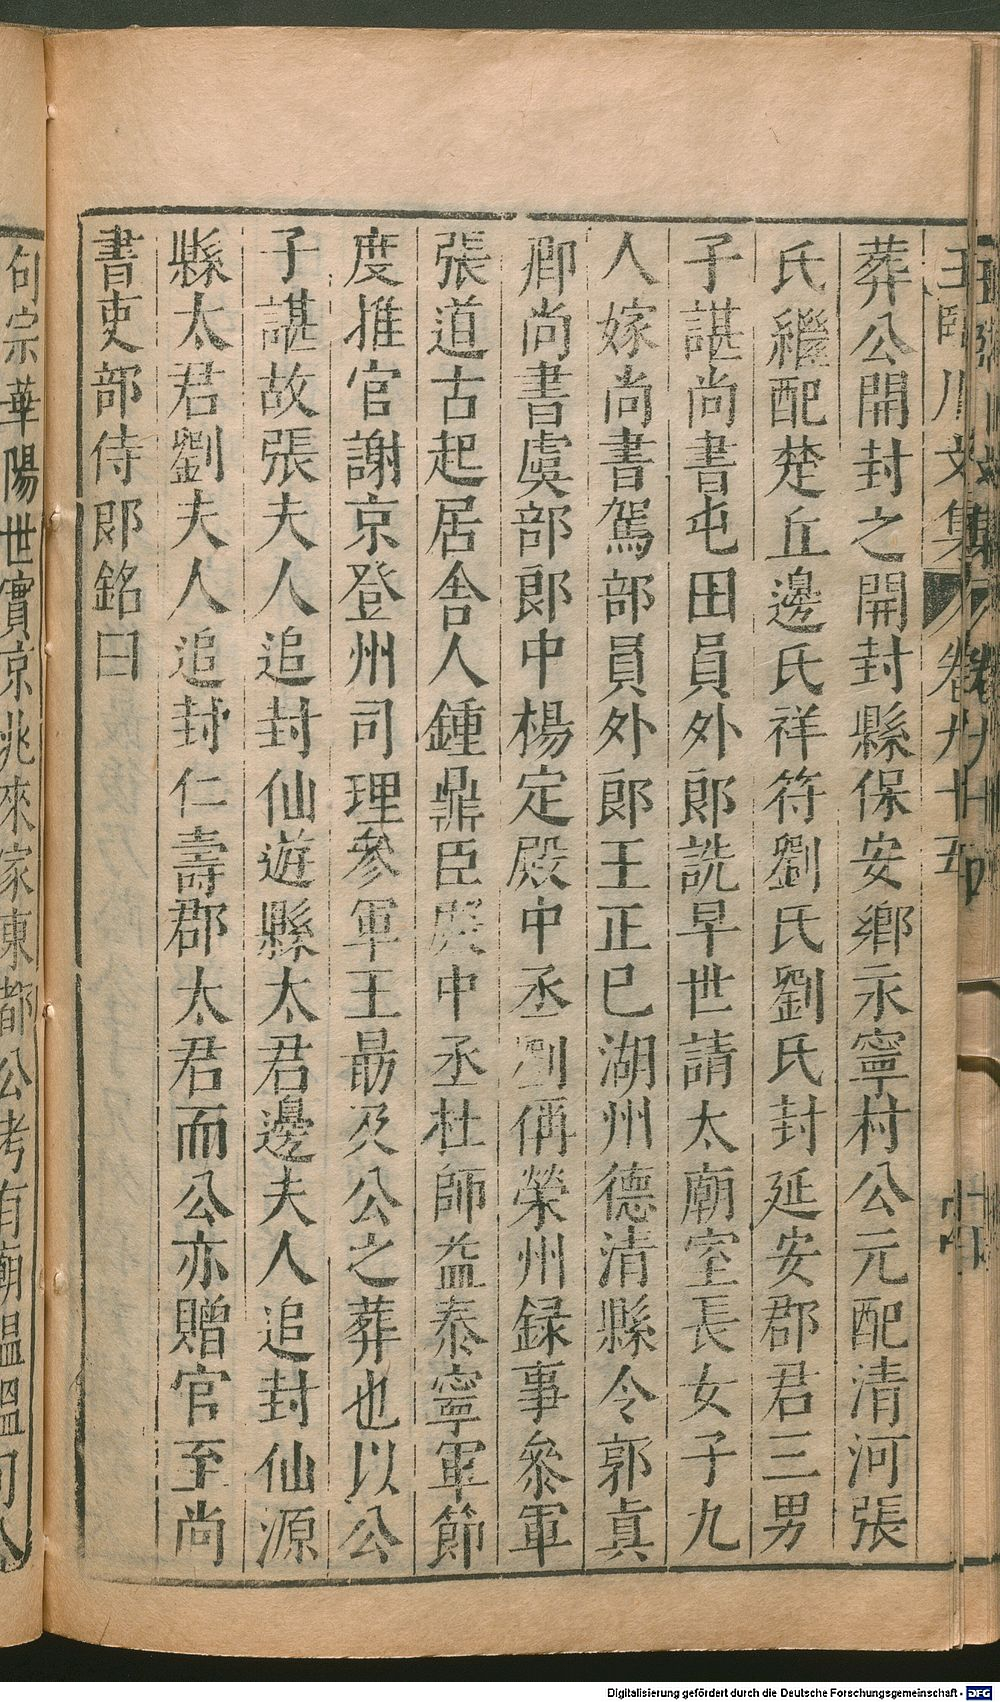 葬公開封之開封縣保安鄉永寧村公元配清河張
氏繼配楚丘邊氏祥符劉氏劉氏封延安郡君三男
子諶尚書屯田員外郎詵早世請太廟室長女子九
人嫁尚書駕部員外郎王正巳湖州德清縣令郭眞
卿尚書虞部郎中楊定殿中丞劉偁榮州録事參軍
張道古起居舍人鍾鼎臣殿中丞杜師益泰寧軍節
度推官謝京登州司理參軍王勗及公之葬也以公
子諶故張夫人追封仙遊縣太君邊夫人追封仙源
縣太君劉夫人追封仁壽郡太君而公亦贈官至尚
書吏部侍郎銘曰
句宗華陽世實京兆來家東都公考有廟温温
Digitalisierung gefördert durch die Deutsche Forschungsgemeinschaft - DFG